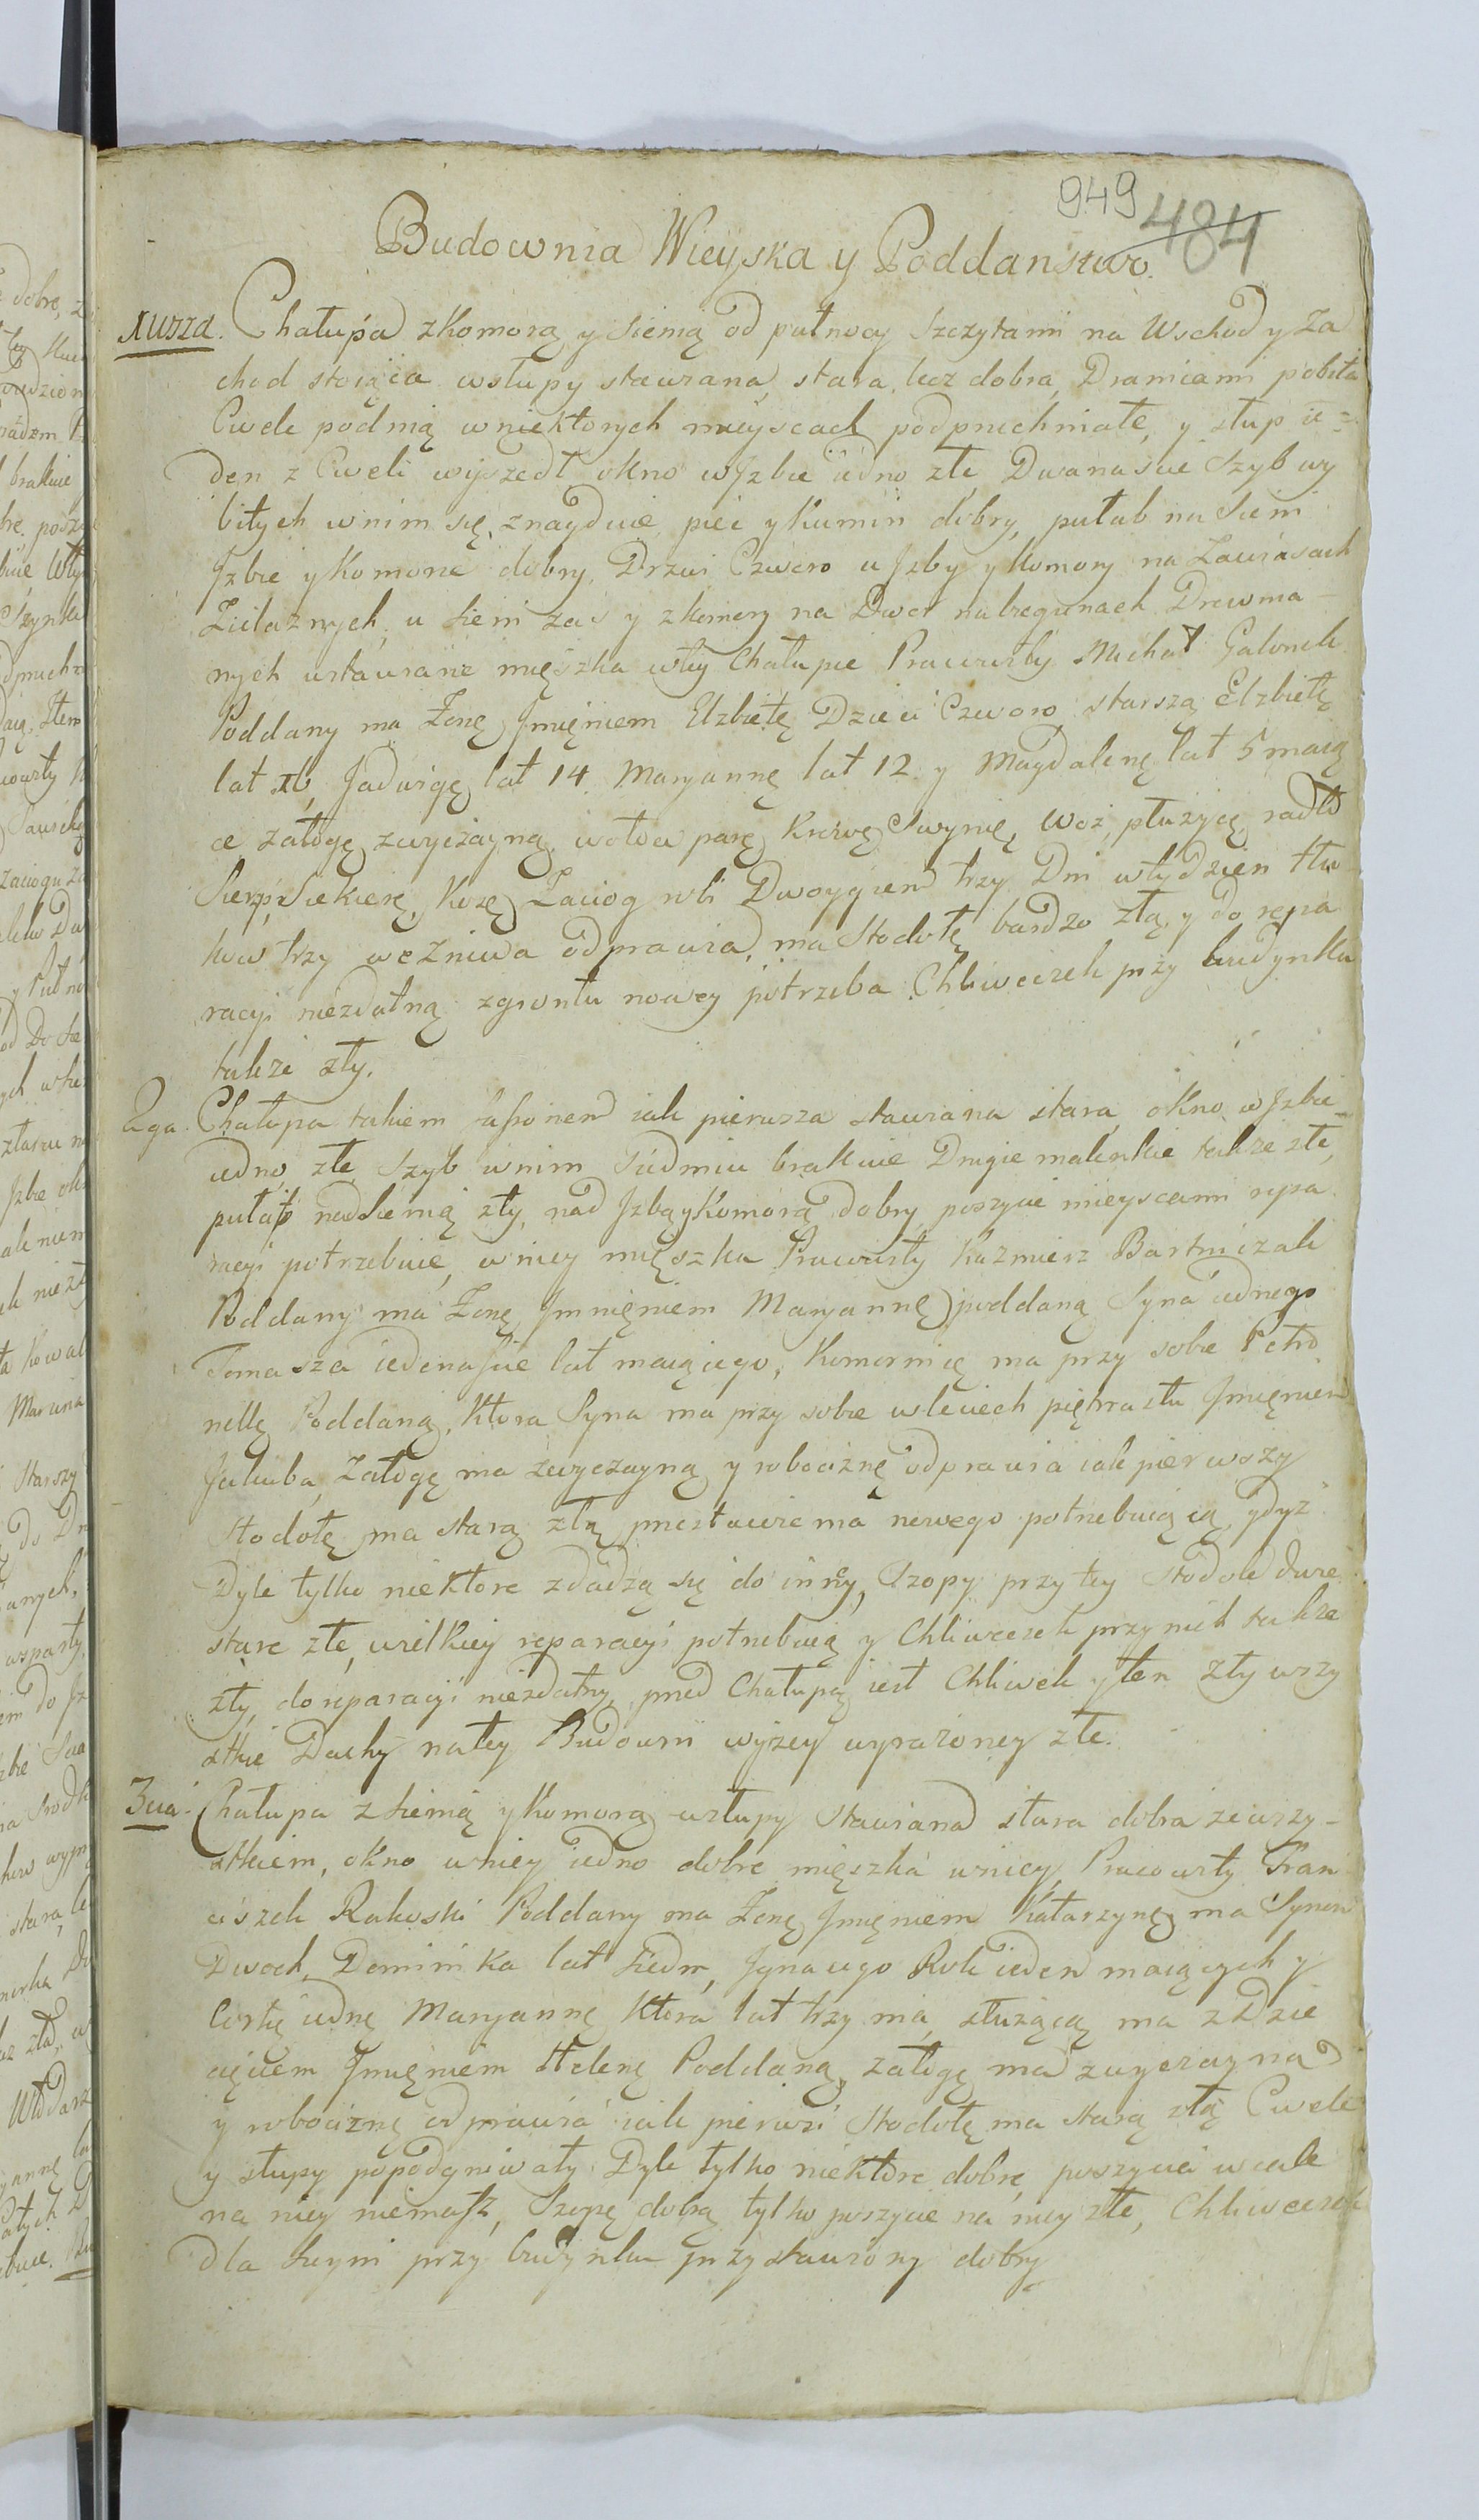 949 484
Budownia Wieyska y Poddanstwo.
1wsza. Chałupa z Komorą y Sienią od pułnocy Szczytami na Wschod y Za
chod stoiąca wsłupy stawiana, stara, lecz dobra, Dranicami pobita
Cwele podnią wniektorych mieyscach podpruchniałe, y słup ie=
den z Cweli wyszedł okno wJzbie iedno złe Dwanascie Szyb wy
bitych wnim się znayduie piec y Kumin dobry, pułab na Sieni
Jzbie y Komorze dobry, Drzwi Czworo u Jzby y Komory na Zawiasach
Żielaznych, u Sieni zas y z komory na Dwor nabiegunach Drewnia-
nych ustawiane mięszka wtey Chałupie Pracowity Michał Galonek
Poddany ma Żonę Jmięniem Elzbietę Dzieci Czworo, starszą Elzbietę
lat 16, Jadwigę lat 14 Maryannę lat 12 y Magdalenę lat 5 maią
ce załogę zwyczayną, wołow parę Krowę Swynię, Woz, płużycę, radło
Sierp, Siekierę, Kosę Zaciog robi Dwoygiem trzy Dni wtydzien tłu
kow trzy wezniwa odprawia, ma Stodołę bardzo złą y do repa
racyi niezdatną zgruntu nowey potrzeba Chliweczek przy budynku
takze zły.
2ga. Chałupa takiem fasonem iak pierwsza stawiana stara, okno wJzbie
iedno, złe Szyb wnim Siedmiu brakuie Drugie malenkie takze złe,
pułap nadSienią zły, nad Jzbą y Komorą dobry poszycie mieyscami repa
racyi potrzebuie, wniey mięszka Pracowity Kazmierz Bartniczak
Poddany ma Żonę Jmnięniem Maryannę poddaną Syna iednego
Tomasza iedenascie lat maiącego, Komornicę ma przy sobie Petro
nellę Poddaną, Ktora Syna ma przy sobie wleciech piętnastu Jmięniem
Jakuba, Załogę ma zwyczayną y robociznę odprawia iak pierwszy
Stodołę ma starą złą przestawienia nowego potrzebuiącą, gdyż
Dyle tylko niektore zdadzą się do inny, Szopy przy tey Stodole dwie
stare złe, wielkiey reparacyi potrzebuią y Chliweczek przy nich takze
zły, do reparacyi niezdatny, przed Chałupą iest Chliwek y ten zły wszy
stkie Dachy natey Budowni wyżey wyrażoney złe.
3cia. Chałupa z Sienią y Komorą wsłupy stawiana stara dobra zewszy-
stkiem, okno wniey iedno dobre mięszka wniey Pracowity Fran
ciszek Rakoski Poddany ma Żonę Jmięniem Katarzynę ma Synow
Dwoch, Dominika lat Siedm, Jgnacego Rok ieden maiących y
Corkę iednę Maryannę Ktora lat trzy ma, służącą ma z Dzie
cięciem Jmięniem Helenę Poddaną, załogę ma zwyczayną
y robociznę odprawia iak pierwsi Stodołę ma starą złą Cwele
y słupy popodgniwały Dyle tylko niektore dobre, poszycia wcale
na niey niemasz, Szopę dobrą tylko poszycie na niey złe, Chliweczek
dla Swyni przy budynku przystawiony dobry